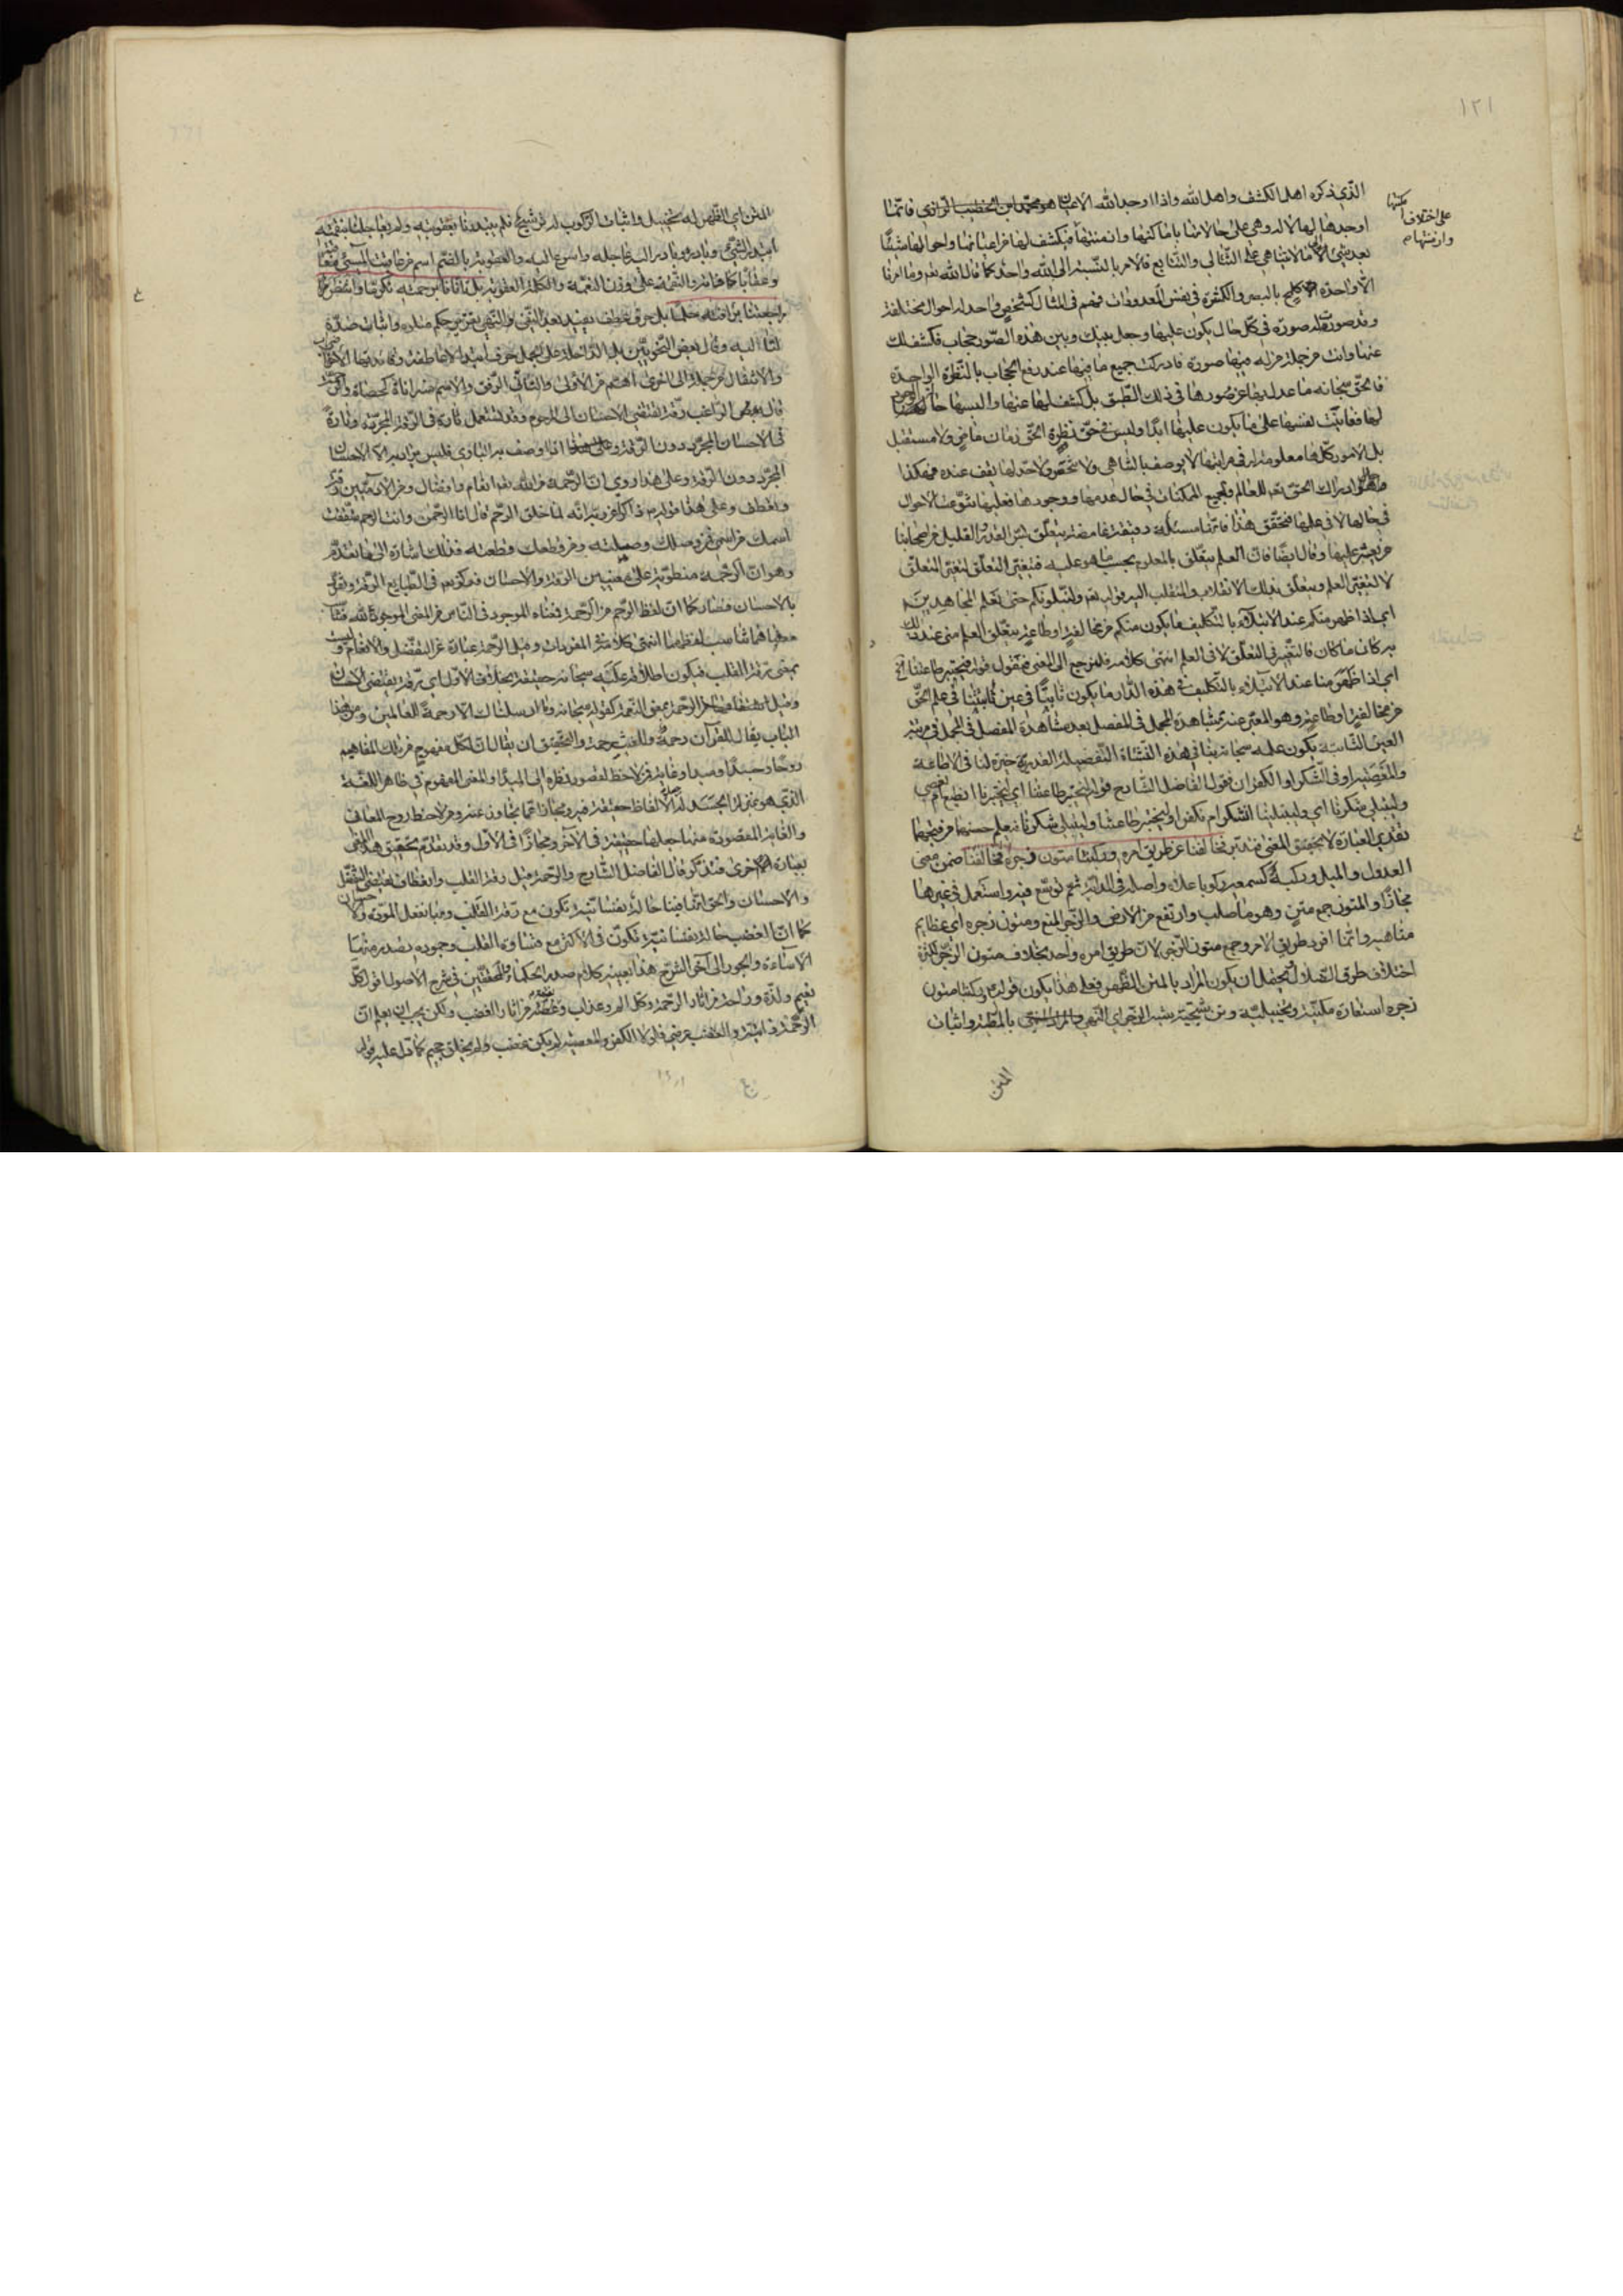 ١٢١
الذي ذكره اهل الكشف واهل الله واذا اوجد الله الاعيان فانما
على اختلاف امكنتها وازمنتها م
اوجدها لها لا له وهي على حالاتها باماكنها وازمنتها فيكشف لها عن اعيانها واحوالها شيئا
بعد شيء الى ما لا يتناهى على التتالي والتتابع فالامر بالنسبة الى الله واحد كما قال الله تعالى وما امرنا
الا واحدة كلمح بالبصر والكثرة في نفس المعدودات فهم في المثال كشخص واحد له احوال مختلفة
وقد صور له صورة في كل حال يكون عليها وجعل بينك وبين هذه الصور حجاب فكشف لك
عنها وانت من جملة من له فيها صورة فادركت جميع ما فيها عند رفع الحجاب بالنظرة الواحدة
فالحق سبحانه ما عدل بها عن صورها في ذلك الطبق بل كشف لها عنها والبسها حالة الوجود
لها فعاينت نفسها على ما يكون عليها ابدا وليس في حق نظرة الحق زمان ماض ولا مستقبل
بل الامور كلها معلومة له في مراتبها لا يوصف بالتناهي ولا تنحصر ولا حد لها يقف عنده فهكذا
هو ادراك الحق تعالى للعالم ولجميع الممكنات في حال عدمها ووجودها فعليها تنوعت الاحوال
في خيالها لا في علمها فتحقق هذا فانها مسئلة دقيقة غامضة يتعلق بسر القدر القليل من اصحابنا
من يعثر عليها وقال ايضا فان العلم يتعلق بالمعلوم بحسب ما هو عليه فتغير التعلق لتغير المتعلق
لا لتغير العلم ويتعلق بذلك الانقلاب والمنقلب اليه قوله تعالى ولنبلونكم حتى نعلم المجاهدين
اي اذا ظهر منكم عند الابتلاء بالتكليف ما يكون منكم من مخالفة او طاعة يتعلق العلم مني عند ذلك
به كان ما كان فالتغير في التعلق لا في العلم انتهى كلامه فلنرجع الى المعنى فنقول قوله فيختبر طاعتنا
اي اذا ظهر منا عند الابتلاء بالتكليف في هذه الدار ما يكون ثابتا في عين ثابتتنا في علم الحق
من مخالفة او طاعة وهو المعبر عنه بمشاهدة المجمل في المفصل بعد مشاهدة المفصل في المجمل في مرتبة
العين الثابتة يكون علمه سبحانه بنا في هذه النشأة التفصيلية القدرية خبرة لنا في الاطاعة
والتقصير او في الشكر او الكفران فقول الفاضل الشارح قوله ليختبر طاعتنا اي ليختبرنا انطيع ام نعصي
وليبتلي شكرنا اي وليبتلينا انشكر ام نكفر او ليختبر طاعتنا وليبتلي شكرنا فيعلم حسنها من قبحها
تفنن في العبارة لا تحقيق المعنى فتدبر فخالفنا عن طريق امره وركبنا متون زجره فخالفنا ضمن معنى
العدول والميل وركبه كسمعه ركوبا علاه واصله في الدابة ثم توسع فيه واستعمل في غيرها
مجازا والمتون جمع متن وهو ما صلب وارتفع من الارض والزجر المنع ومتون زجره اي عظايم
مناهيه وانما افرد طريق الامر وجمع متون الزجر لان طريق امره واحد بخلاف متون الزجر لكثرة
اختلاف طرق الضلال ويحتمل ان يكون المراد بالمتن الظهر فعلى هذا يكون قوله وركبنا متون
زجره استعارة مكنية وتخييلية وترشيحية بشبه الزجر اي النهي بالمطية واثبات
المتن
المتن اي الظهر له تخييل واثبات الركوب له ترشيح فلم يبتدرنا بعقوبته ولم يعاجلنا بنقمته
ابتدر الشيء وبادره وبادر اليه عاجله واسرع اليه والعقوبة بالضم اسم من عاقبت المسيء معاقبة
وعقابا كافاته والنقمة على وزن النعمة والكلمة العقوبة بل تأنانا برحمته تكرما وانتظر
مراجعتنا برأفته حلما بل حرف عطف يفيد بعد النفي والنهي تقرير حكم متلوه واثبات ضده
لتاليه وقال بعض النحويين بل الداخلة على الجمل حرف ابتداء لا عاطفة وفائدتها الاضراب
والانتقال من جملة الى اخرى اهم من الاولى والتأني الرفق والاسم منه اناة كحصاة والرحمة
قال بعض الراغب رقة تقتضي الاحسان الى المرحوم وقد تستعمل تارة في الرقة المجردة وتارة
في الاحسان المجرد دون الرقة اذا وصف به الباري فليس يراد به الا الاحسان
المجرد دون الرقة وعلى هذا روي ان الرحمة من الله تعالى انعام وافضال ومن الادميين رقة
وتعطف وعلى هذا قوله ص ذاكرا عن ربه انه لما خلق الرحم قال انا الرحمن وانت الرحم شققت
اسمك من اسمي فمن وصلك وصلته ومن قطعك قطعته فذلك اشارة الى ما تقدم
وهو ان الرحمة منطوية على معنيين الرقة والاحسان فركز تعالى في الطبايع الرقة وتفرد
بالاحسان فصار كما ان لفظ الرحم من الرحمة فمعناه الموجود في الناس من المعنى الموجود لله فتناسب
معناهما تناسب لفظيهما انتهى كلامه في المفردات وقيل الرحمة عبارة عن التفضل والانعام وليست
بمعنى رقة القلب فيكون اطلاقه عليه سبحانه حقيقة بخلاف الاول اي رقة يقتضي الاحسان
وقيل الرحمة بمعنى النعمة كقوله سبحانه وما ارسلناك الا رحمة للعالمين ومن هذا
الباب يقال للقرآن رحمة وللغيث رحمة والتحقيق ان يقال ان لكل مفهوم من تلك المفاهيم
روحا وجسدا ومبدا وغاية فمن لاحظ لقصور نظره الى المبدأ والمعنى المفهوم في ظاهر اللغة
الذي هو بمنزلة الجسد له جعل الالفاظ حقيقة فيه ومجازا عما يتجاوز عنه ومن لاحظ روح المعاني
والغاية المقصودة منها جعلها حقيقة في الآخر ومجازا في الاول وقد تقدم تحقيق هذا المعنى
بعبارة اخرى فتذكر قال الفاضل الشارح والرحمة قيل رقة القلب وانعطاف يقتضي التفضل
والاحسان والحق انها فينا حالة نفسانية تكون مع رقة القلب ومبدا فعل المروة والاحسان
كما ان الغضب حالة نفسانية تكون في الاكثر مع قساوة القلب وجموده يصدر منه مبدأ
الاساءة والجور الى آخر الشرح هذا بعينه كلام صدر الحكماء والمحققين في شرح الاصول قوله كل
نعيم ولذة وراحة من آثار الرحمة وكل الم وعذاب ونقمة وغصة من آثار الغضب ولكن يجب ان يعلم ان
الرحمة ذاتية والغضب عرضي فلولا الكفر والمعصية لم يكن غضب ولم يخلق جحيم كما دل عليه قوله